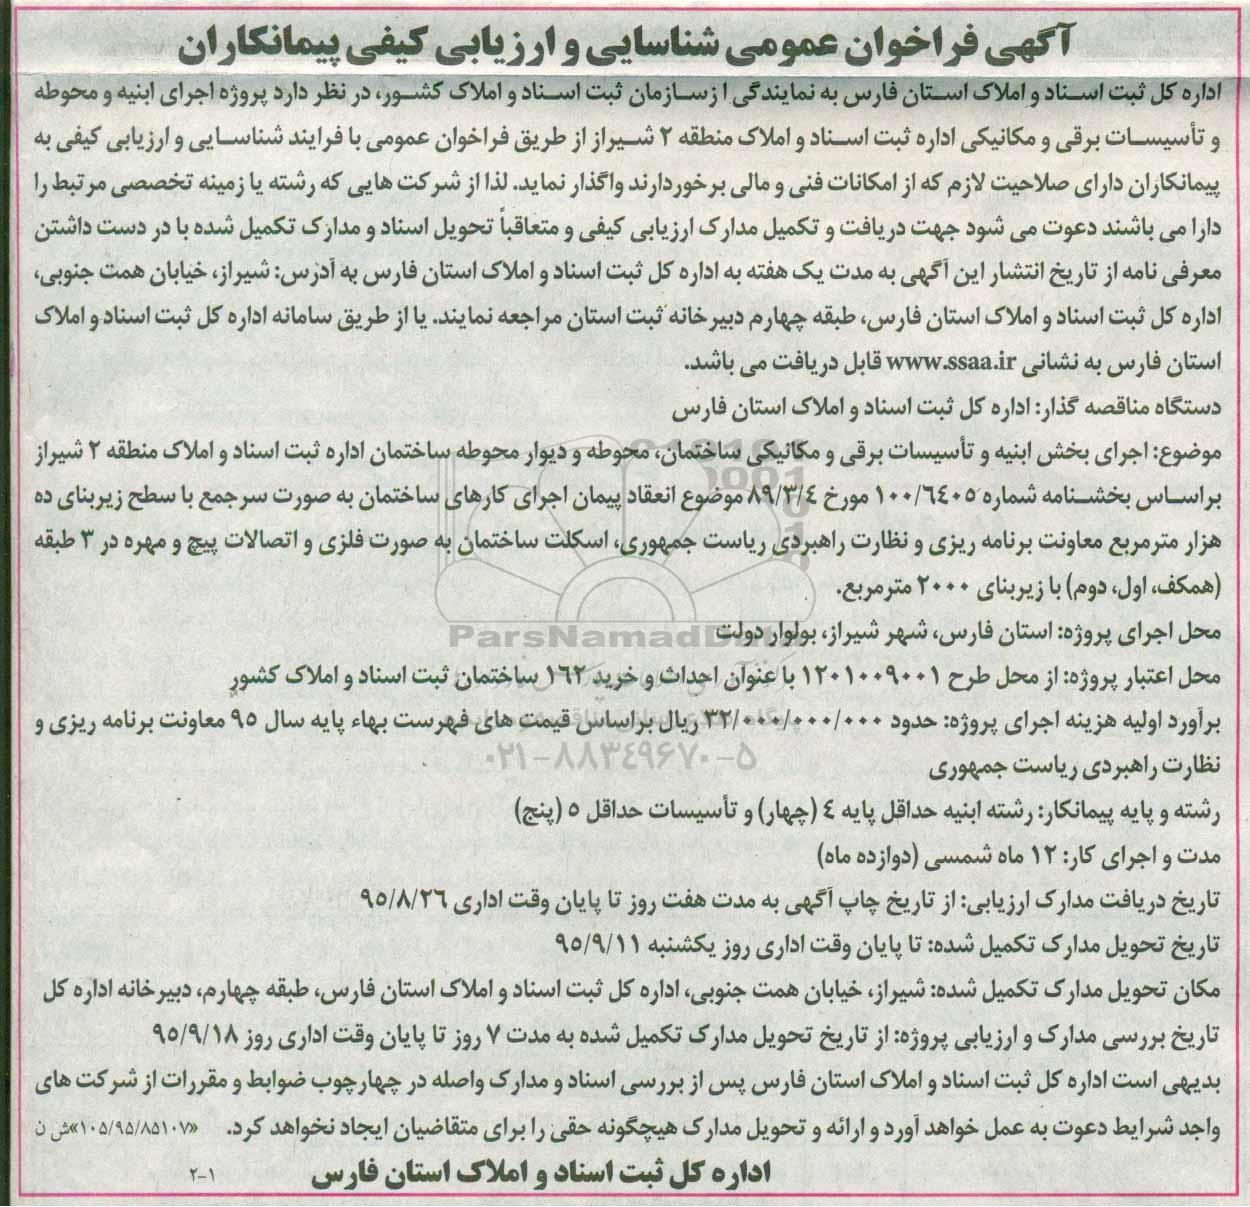 آگهی فراخوان عمومی شناسایی و ارزیابی کیفی پیمانکاران
اداره کل ثبت اسناد و املاک استان فارس به نمایندگی ا زسازمان ثبت اسناد و املاک کشور، در نظر دارد پروژه اجرای ابنیه و محوطه
و تأسیسات برقی و مکانیکی اداره ثبت اسناد و املاک منطقه ۲ شیراز از طریق فراخوان عمومی با فرایند شناسایی و ارزیابی کیفی به
پیمانکاران دارای صلاحیت لازم که از امکانات فنی و مالی برخوردارند واگذار نماید. لذا از شرکت هایی که رشته یا زمینه تخصصی مرتبط را
دارا می باشند دعوت می شود جهت دریافت و تکمیل مدارک ارزیابی کیفی و متعاقباً تحویل اسناد و مدارک تکمیل شده با در دست داشتن
معرفی نامه از تاریخ انتشار این آگهی به مدت یک هفته به اداره کل ثبت اسناد و املاک استان فارس به آدرس: شیراز، خیابان همت جنوبی،
اداره کل ثبت اسناد و املاک استان فارس، طبقه چهارم دبیرخانه ثبت استان مراجعه نمایند. یا از طریق سامانه اداره کل ثبت اسناد و املاک
استان فارس به نشانی www.ssaa.ir قابل دریافت می باشد.
دستگاه مناقصه گذار: اداره کل ثبت اسناد و املاک استان فارس
موضوع: اجرای بخش ابنیه و تأسیسات برقی و مکانیکی ساختمان، محوطه و دیوار محوطه ساختمان اداره ثبت اسناد و املاک منطقه ۲ شیراز
براساس بخشنامه شماره ۱۰۰/۶۴۰۵ مورخ ۸۹/۳/۴ موضوع انعقاد پیمان اجرای کارهای ساختمان به صورت سرجمع با سطح زیربنای ده
هزار مترمربع معاونت برنامه ریزی و نظارت راهبردی ریاست جمهوری، اسکلت ساختمان به صورت فلزی و اتصالات پیچ و مهره در ۳ طبقه
(همکف، اول، دوم) با زیربنای ۲۰۰۰ مترمربع.
ParsNamadData
محل اجرای پروژه: استان فارس، شهر شیراز، بولوار دولت
محل اعتبار پروژه: از محل طرح ۱۲۰۱۰۰۹۰۰۱ با عنوان احداث و خرید ۱۶۲ ساختمان ثبت اسناد و املاک کشور
برآورد اولیه هزینه اجرای پروژه: حدود ۳۲/۰۰۰/۰۰۰/۰۰۰ ریال براساس قیمت های فهرست بهاء پایه سال ۹۵ معاونت برنامه ریزی و
۰۲۱-۸۸۳۴۹۶۷۰-۵
نظارت راهبردی ریاست جمهوری
رشته و پایه پیمانکار: رشته ابنیه حداقل پایه ۴ (چهار) و تأسیسات حداقل ۵ (پنج)
مدت و اجرای کار: ۱۲ ماه شمسی (دوازده ماه)
تاریخ دریافت مدارک ارزیابی: از تاریخ چاپ آگهی به مدت هفت روز تا پایان وقت اداری ۹۵/۸/۲۶
تاریخ تحویل مدارک تکمیل شده: تا پایان وقت اداری روز یکشنبه ۹۵/۹/۱۱
مکان تحویل مدارک تکمیل شده: شیراز، خیابان همت جنوبی، اداره کل ثبت اسناد و املاک استان فارس، طبقه چهارم، دبیرخانه اداره کل
تاریخ بررسی مدارک و ارزیابی پروژه: از تاریخ تحویل مدارک تکمیل شده به مدت ۷ روز تا پایان وقت اداری روز ۹۵/۹/۱۸
بدیهی است اداره کل ثبت اسناد و املاک استان فارس پس از بررسی اسناد و مدارک واصله در چهارچوب ضوابط و مقررات از شرکت های
واجد شرایط دعوت به عمل خواهد آورد و ارائه و تحویل مدارک هیچگونه حقی را برای متقاضیان ایجاد نخواهد کرد. «۱۰۵/۹۵/۸۵۱۰۷» ش ن
اداره کل ثبت اسناد و املاک استان فارس ۲-۱